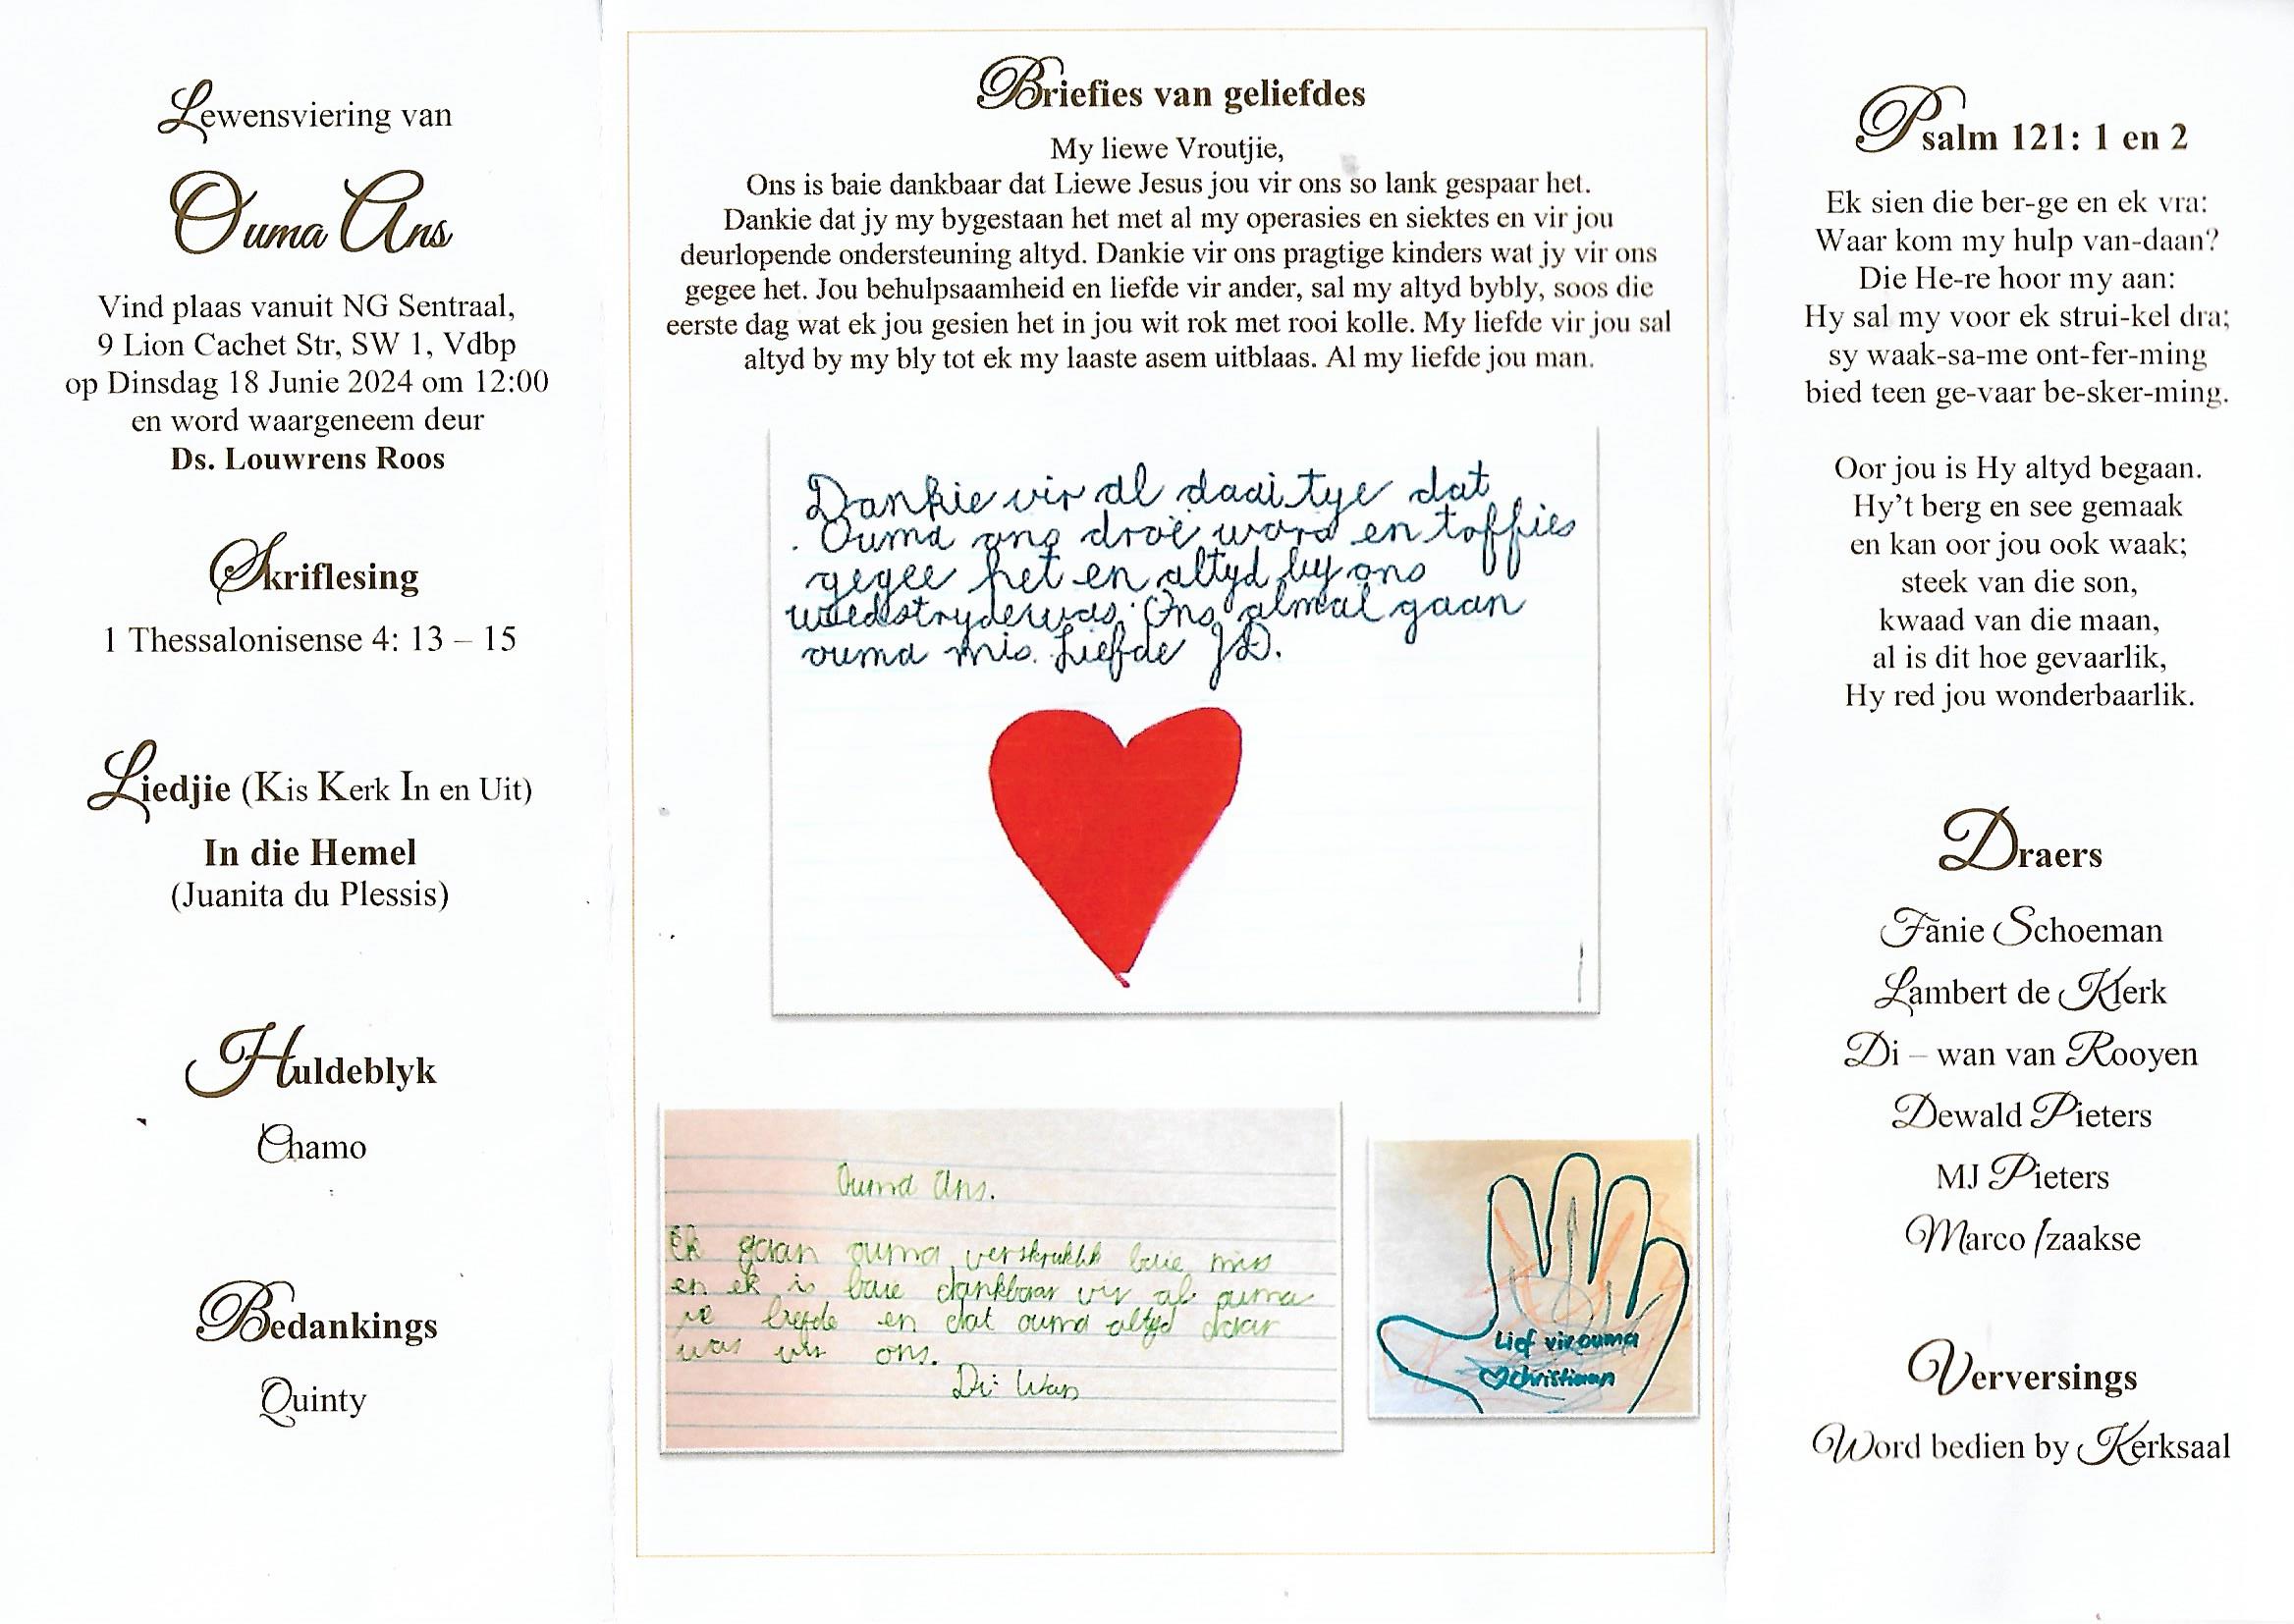 Lewensviering van
Ouma Ans
Vind plaas vanuit NG Sentraal,
9 Lion Cachet Str, SW 1, Vdbp
op Dinsdag 18 Junie 2024 om 12:00
en word waargeneem deur
Ds. Louwrens Roos
Skriflesing
1 Thessalonisense 4: 13 – 15
Liedjie (Kis Kerk In en Uit)
In die Hemel
(Juanita du Plessis)
Huldeblyk
Chamo
Bedankings
Quinty
Briefies van geliefdes
My liewe Vroutjie,
Ons is baie dankbaar dat Liewe Jesus jou vir ons so lank gespaar het.
Dankie dat jy my bygestaan het met al my operasies en siektes en vir jou
deurlopende ondersteuning altyd. Dankie vir ons pragtige kinders wat jy vir ons
gegee het. Jou behulpsaamheid en liefde vir ander, sal my altyd bybly, soos die
eerste dag wat ek jou gesien het in jou wit rok met rooi kolle. My liefde vir jou sal
altyd by my bly tot ek my laaste asem uitblaas. Al my liefde jou man.
Dankie vir al daai tye dat
Ouma ons droë wors en toffies
gegee het en altyd by ons
wedstryde was. Ons almal gaan
ouma mis. Liefde JD.
Ouma Ans.
Ek gaan ouma verskriklik baie mis
en ek is baie dankbaar vir al ouma
se liefde en dat ouma altyd daar
was vir ons.
Di-Wan
Lief vir ouma
Christiaan
Psalm 121: 1 en 2
Ek sien die ber-ge en ek vra:
Waar kom my hulp van-daan?
Die He-re hoor my aan:
Hy sal my voor ek strui-kel dra;
sy waak-sa-me ont-fer-ming
bied teen ge-vaar be-sker-ming.
Oor jou is Hy altyd begaan.
Hy't berg en see gemaak
en kan oor jou ook waak;
steek van die son,
kwaad van die maan,
al is dit hoe gevaarlik,
Hy red jou wonderbaarlik.
Draers
Fanie Schoeman
Lambert de Klerk
Di – wan van Rooyen
Dewald Pieters
MJ Pieters
Marco Izaakse
Verversings
Word bedien by Kerksaal